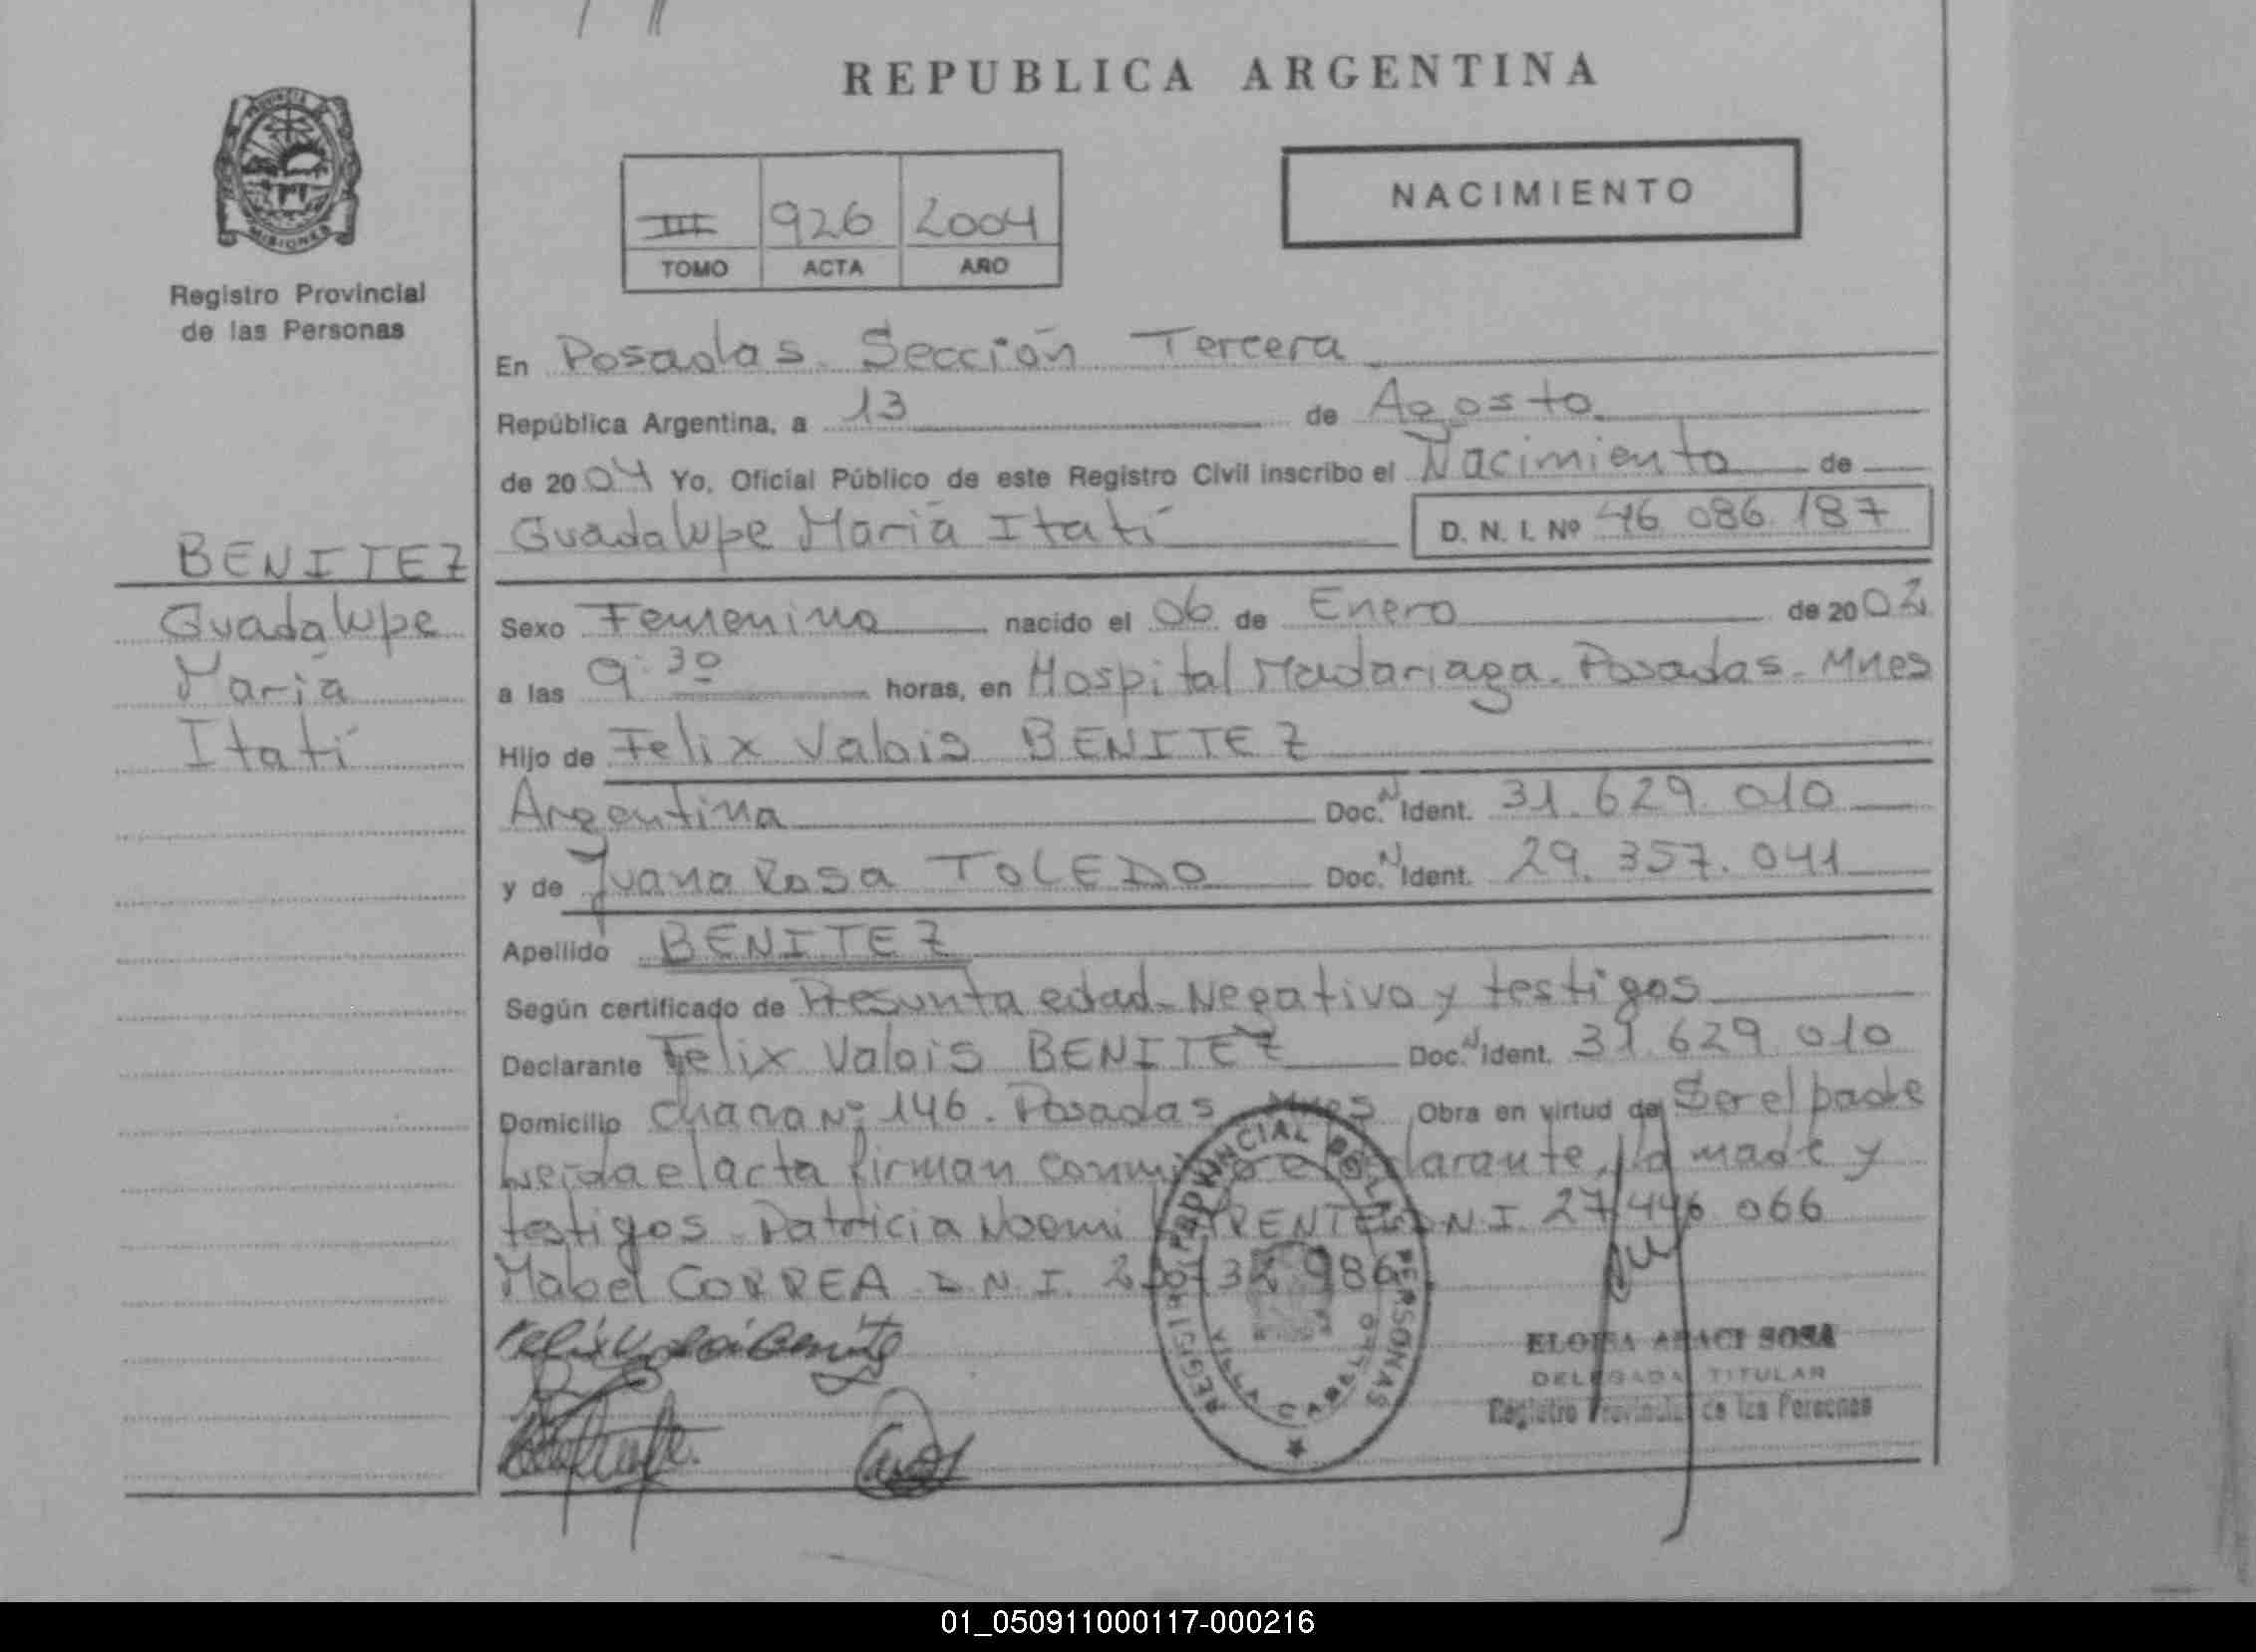 REPUBLICA ARGENTINA
PROVINCIA DE
MISIONES
Registro Provincial
de las Personas
III 926 2004
TOMO ACTA AÑO
NACIMIENTO
En Posadas. Sección Tercera
República Argentina, a 13 de Agosto
de 2004 Yo, Oficial Público de este Registro Civil inscribo el Nacimiento de
Guadalupe María Itatí D. N. I. Nº 46 086 187
BENITEZ
Guadalupe
María
Itatí
Sexo Femenino nacido el 06 de Enero de 2002
a las 9:30 horas, en Hospital Madariaga. Posadas - Mnes
Hijo de Felix Valois BENITEZ
Argentina Doc. N Ident. 31.629.010
y de Juana Rosa TOLEDO Doc. N Ident. 29.357.041
Apellido BENITEZ
Según certificado de Presunta edad - Negativo y testigos
Declarante Felix Valois BENITEZ Doc. N Ident. 31 629 010
Domicilio Chacra Nº 146. Posadas Mnes Obra en virtud de Ser el padre
Leida el acta firman conmigo el declarante, la madre y
testigos - Patricia Noemi D.N.I. 27 446 066
Mabel CORREA D.N.I. 986
Felix Valoi Benite
REGISTRO PROVINCIAL DE LAS PERSONAS
VILLA CABELLO
ELOISA ARACI SOSA
DELEGADA TITULAR
Registro Provincial de las Personas
01_050911000117-000216